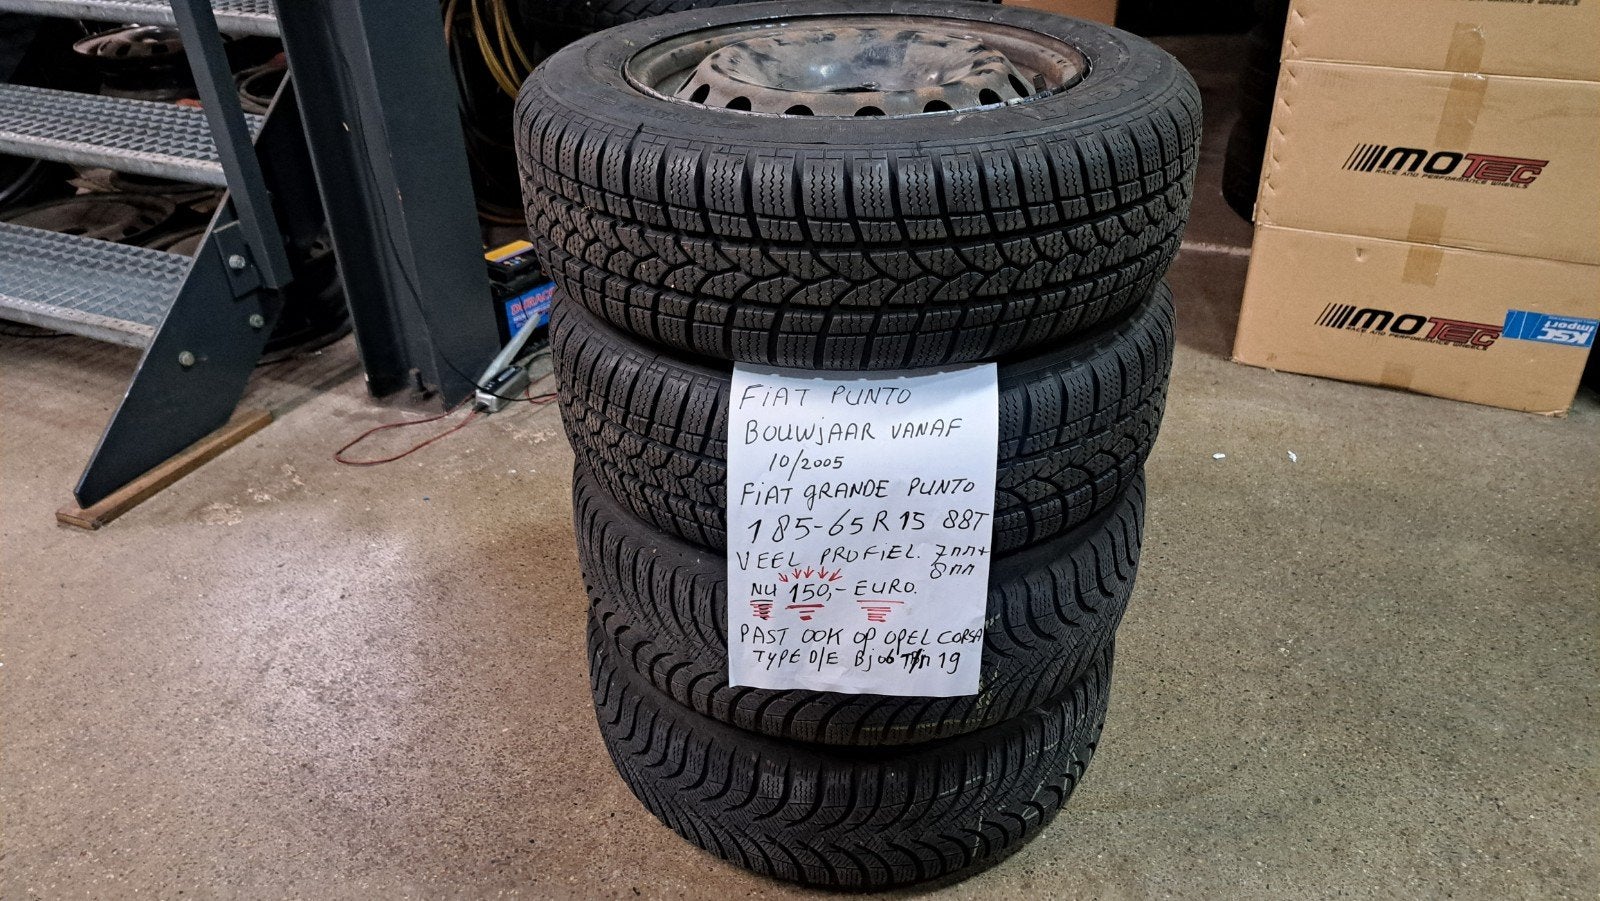 FiAT PUNTO
BOUWjAAR VANAF
10/2005
FiAT gRANDE PUNTO
185-65 R 15 88T
VEEL PROFiEL. 7mm+
8mm
NU 150,- EURO.
PAST OOK OP OPEL CORSA
TYPE D/E Bj 06 T/m 19
MOTEC
RACE AND PERFORMANCE WHEELS
MOTEC
RACE AND PERFORMANCE WHEELS
KSC
import